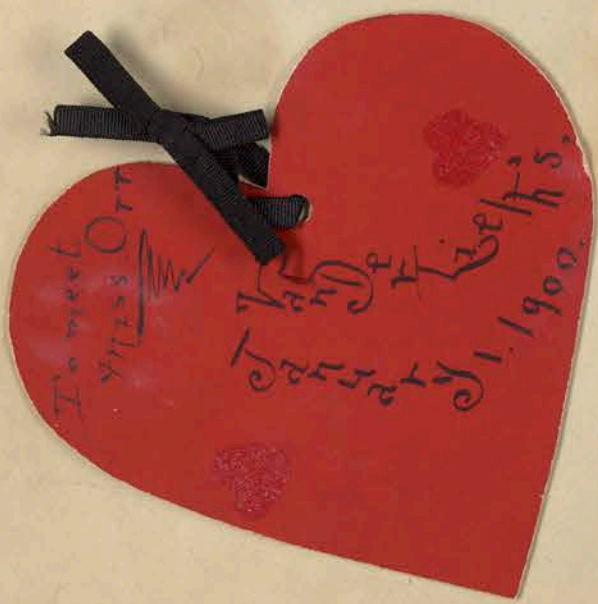 To meet
Miss Orr
Van De r
January 1, 1900.